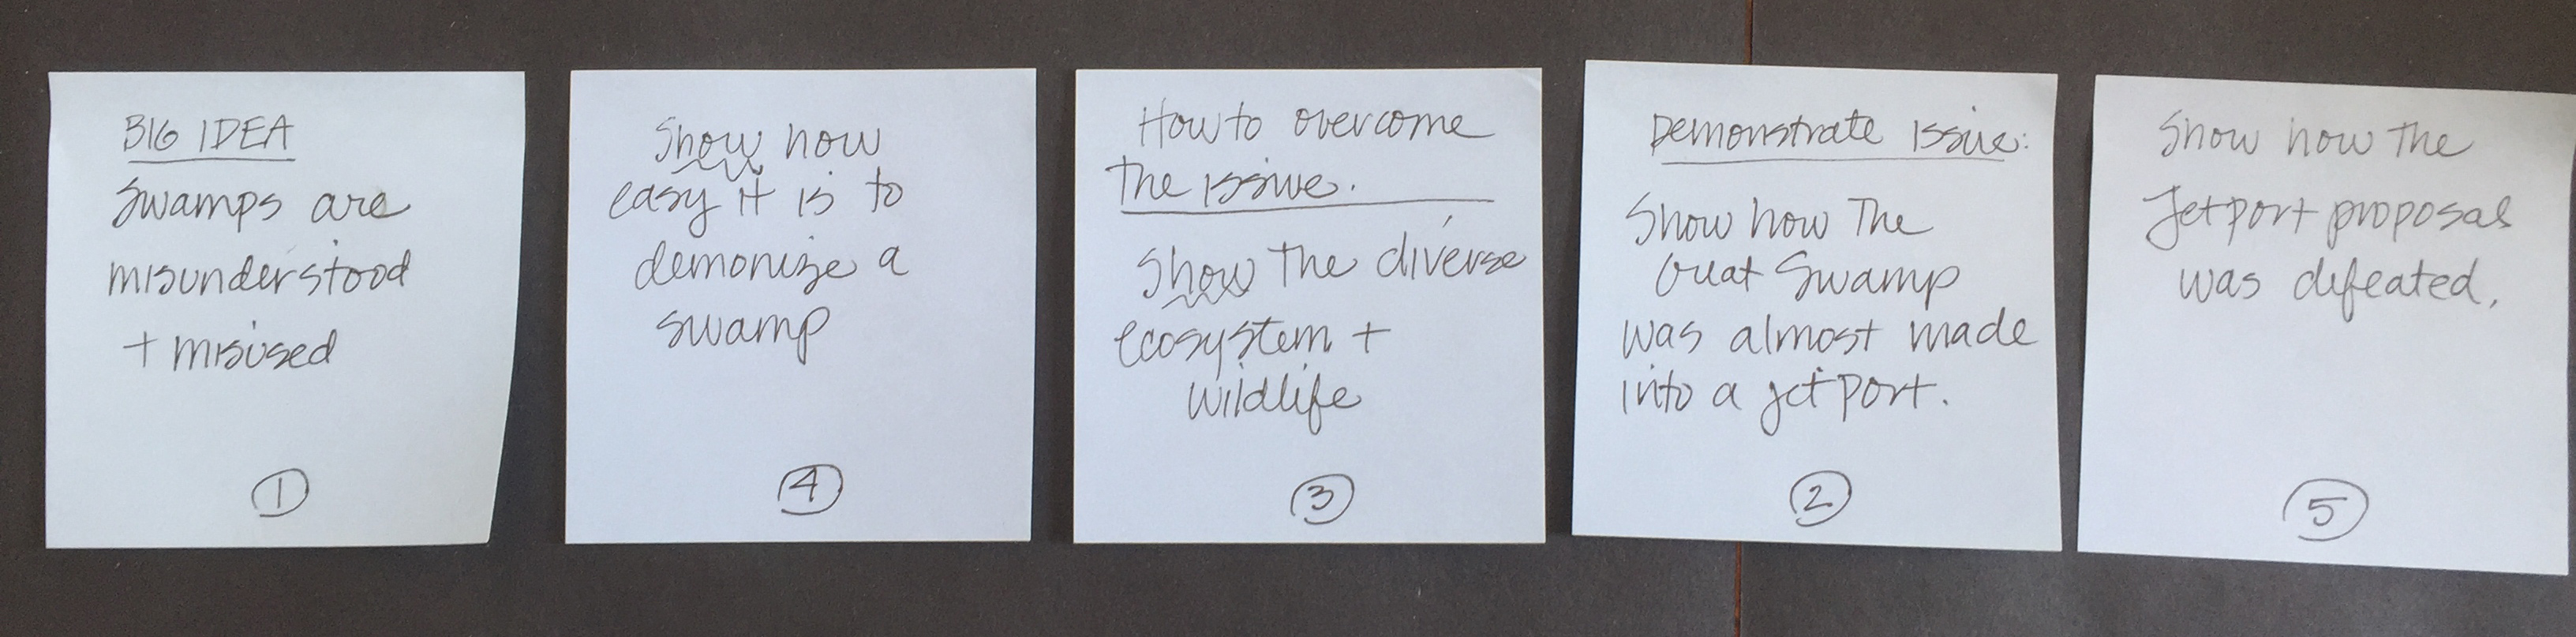 BIG IDEA
Swamps are
misunderstood
+ misused
1
Show how
easy it is to
demonize a
swamp
4
How to overcome
the issue.
Show the diverse
ecosystem +
wildlife
3
Demonstrate issue:
Show how The
Great Swamp
was almost made
into a jetport.
2
Show how the
Jetport proposal
was defeated.
5